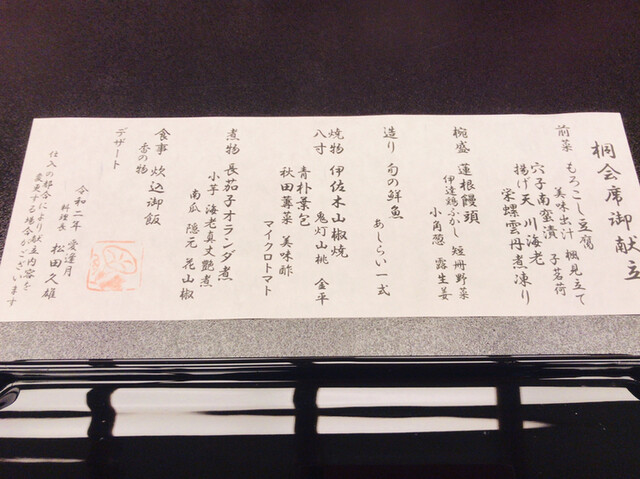 桐会席御献立
前菜 もろこし豆腐
美味出汁 楓見立て
穴子南蛮漬 子茗荷
揚げ天 川海老
栄螺雲丹煮凍り
椀盛 蓮根饅頭
伊達鶏ふかし 短冊野菜
小角葱 露生姜
造り 旬の鮮魚
あしらい一式
焼物 伊佐木山椒焼
八寸 鬼灯山桃 金平
青朴葉包
秋田蓴菜 美味酢
マイクロトマト
煮物 長茄子オランダ煮
小芋 海老真丈艶煮
南瓜 隠元 花山椒
食事 炊込御飯
香の物
デザート
令和二年 愛逢月
料理長 松田久雄
仕入の都合により献立内容を
変更する場合がございます